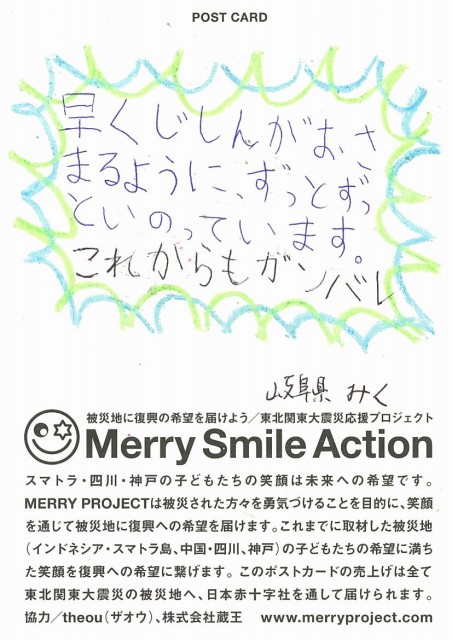 POST CARD
早くじしんがおさ
まるように、ずっとずっ
といのっています。
これからもガンバレ
岐阜県 みく
被災地に復興の希望を届けよう／東北関東大震災応援プロジェクト
Merry Smile Action
スマトラ・四川・神戸の子どもたちの笑顔は未来への希望です。
MERRY PROJECTは被災された方々を勇気づけることを目的に、笑顔
を通じて被災地に復興への希望を届けます。これまでに取材した被災地
（インドネシア・スマトラ島、中国・四川、神戸）の子どもたちの希望に満ち
た笑顔を復興への希望に繋げます。このポストカードの売上げは全て
東北関東大震災の被災地へ、日本赤十字社を通して届けられます。
協力／theou（ザオウ）、株式会社蔵王 www.merryproject.com